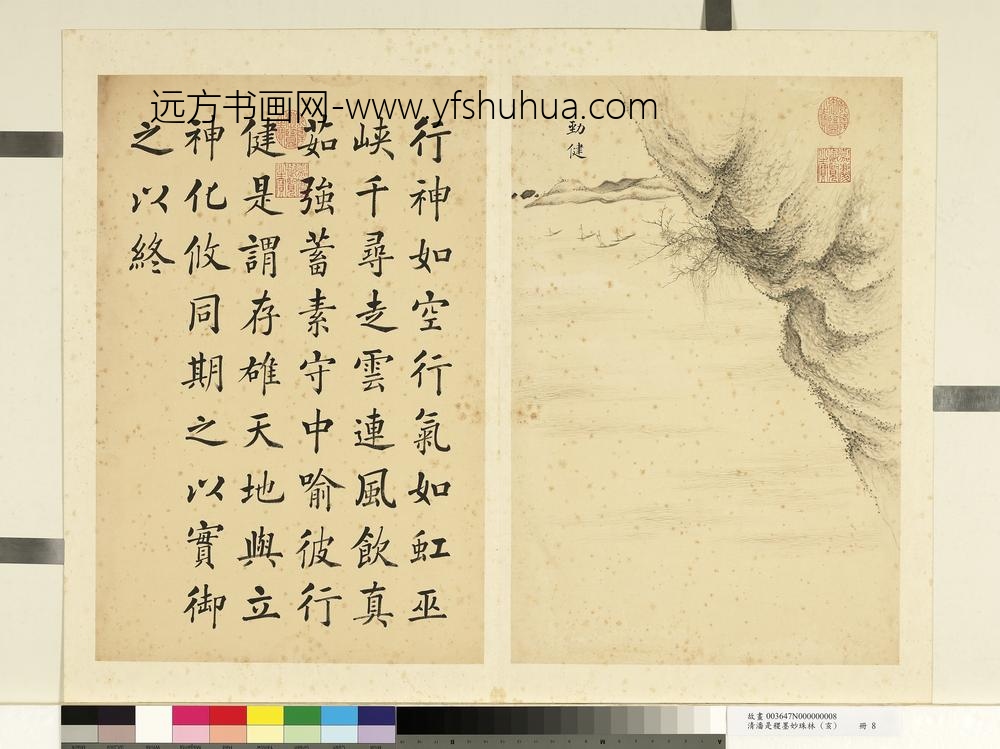 远方书画网-www.yfshuhua.com
勁健
行神如空行氣如虹巫
峽千尋走雲連風飲真
茹強蓄素守中喻彼行
健是謂存雄天地與立
神化攸同期之以實御
之以終
故畫 003647N000000008
清潘是稷墨妙珠林（亥） 冊 8